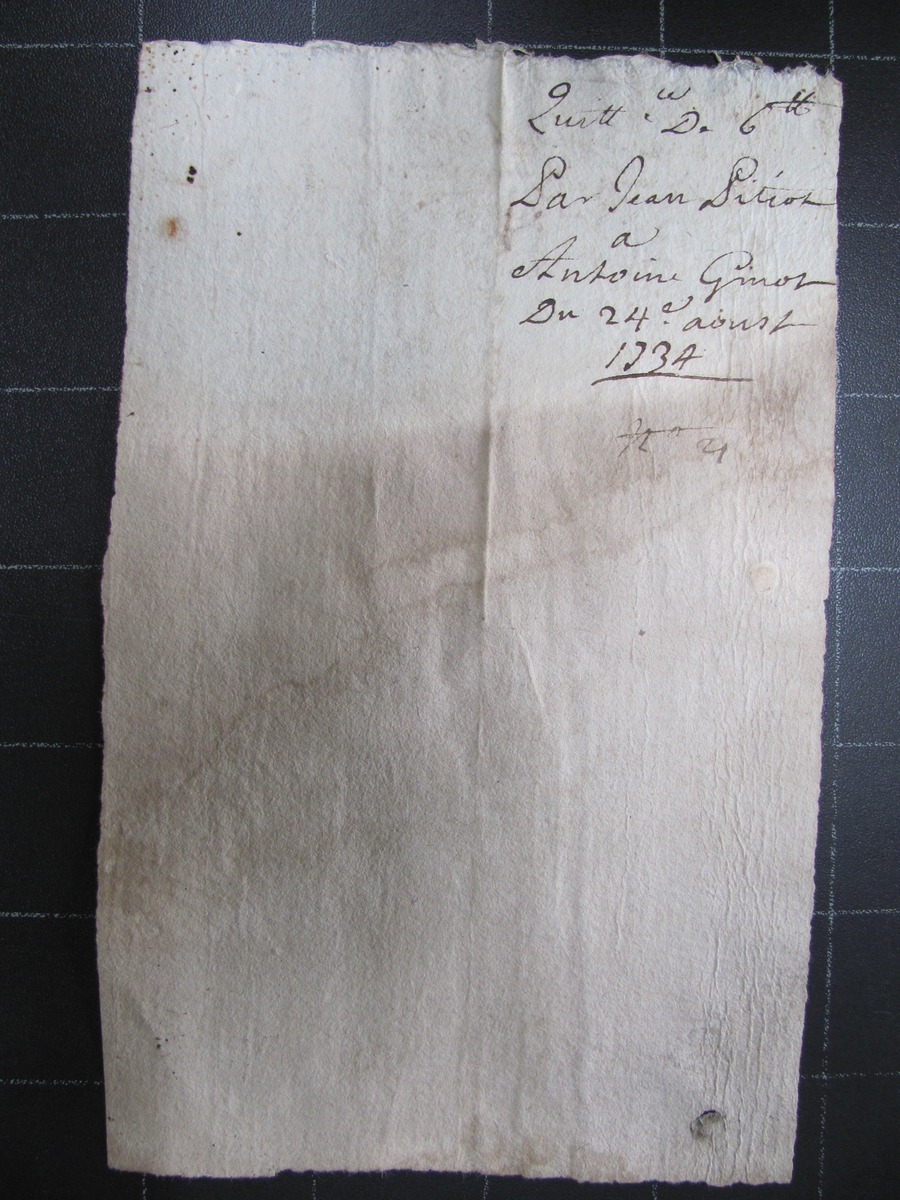 Quitt ce De 6 tt
Par Jean Pitiot
a
Antoine Ginot
Du 24e aoust
1734
No 21